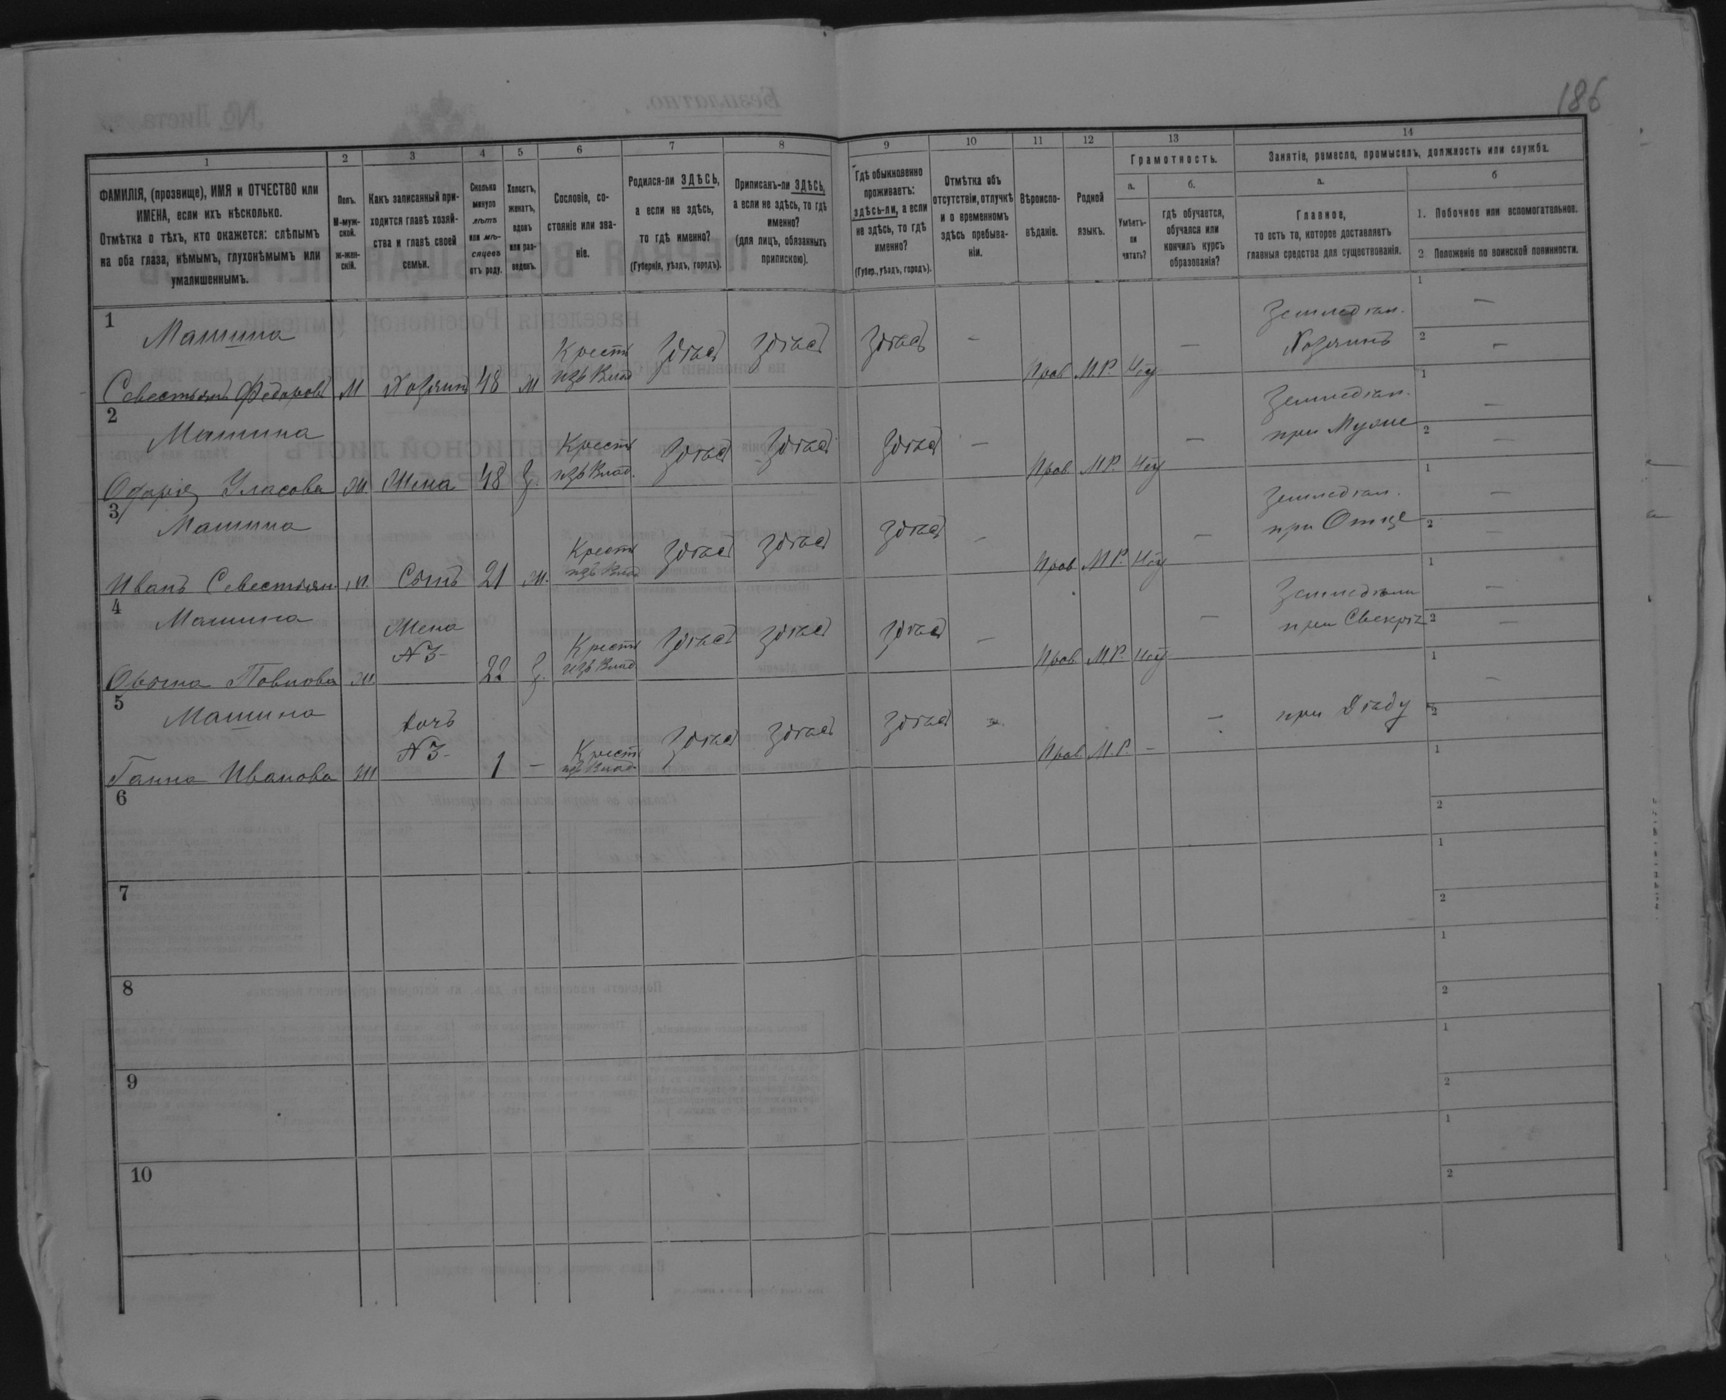 186
1 2 3 4 5 6 7 8 9 10 11 12 13 14
ФАМИЛІЯ, (прозвище), ИМЯ и ОТЧЕСТВО или
ИМЕНА, если ихъ нѣсколько.
Отмѣтка о тѣхъ, кто окажется: слѣпымъ
на оба глаза, нѣмымъ, глухонѣмымъ или
умалишеннымъ.
Полъ.
М-муж-
ской.
Ж-жен-
скій.
Какъ записанный при-
ходится главѣ хозяй-
ства и главѣ своей
семьи.
Сколько
минуло
лѣтъ
или мѣ-
сяцевъ
отъ роду.
Холостъ,
женатъ,
вдовъ
или раз-
веденъ.
Сословіе, со-
стояніе или зва-
ніе.
Родился-ли ЗДѢСЬ,
а если не здѣсь,
то гдѣ именно?
(Губернія, уѣздъ, городъ).
Приписанъ-ли ЗДѢСЬ,
а если не здѣсь, то гдѣ
именно?
(для лицъ, обязанныхъ
припискою).
Гдѣ обыкновенно
проживаетъ:
здѣсь-ли, а если
не здѣсь, то гдѣ
именно?
(Губер., уѣздъ, городъ).
Отмѣтка объ
отсутствіи, отлучкѣ
и о временномъ
здѣсь пребыва-
ніи.
Вѣроиспо-
вѣданіе.
Родной
языкъ.
Грамотность.
а.
Умѣетъ-
ли
читать?
б.
гдѣ обучается,
обучался или
кончилъ курсъ
образованія?
Занятіе, ремесло, промыселъ, должность или служба.
а.
Главное,
то есть то, которое доставляетъ
главныя средства для существованія.
б
1. Побочное или вспомогательное.
2. Положеніе по воинской повинности.
1 Машина Крест Здѣсь Здѣсь Здѣсь - - Земледѣл. 1 —
Севестьянъ Федоровъ М Хозяинъ 48 ж изъ Влад Прав М.Р. Нѣт Хозяинъ 2 —
2 Машина Крест Здѣсь Здѣсь Здѣсь — — Земледѣл. 1 —
Одарія Уласова Ж Жена 48 З. изъ Влад. Прав. М.Р. Нѣт при Мужѣ 2 —
3 Машина Крест Здѣсь Здѣсь Здѣсь - — Земледѣл. 1 —
Иванъ Севестьян М. Сынъ 21 ж. изъ Влад Прав М.Р. Нѣт при Отцѣ 2 —
4 Машина Жена Крест Здѣсь Здѣсь Здѣсь — — Земледѣл 1 —
N3- при Свекрѣ 2 —
Павлова Ж 22 З. изъ Влад Прав М.Р. Нѣт
5 Машина дочь Крест Здѣсь Здѣсь Здѣсь — — при Дѣду 1 —
N3- 2
Ганна Иванова Ж 1 — изъ Влад. Прав М.Р. —
6 1
2
7 1
2
8 1
2
9 1
2
10 1
2